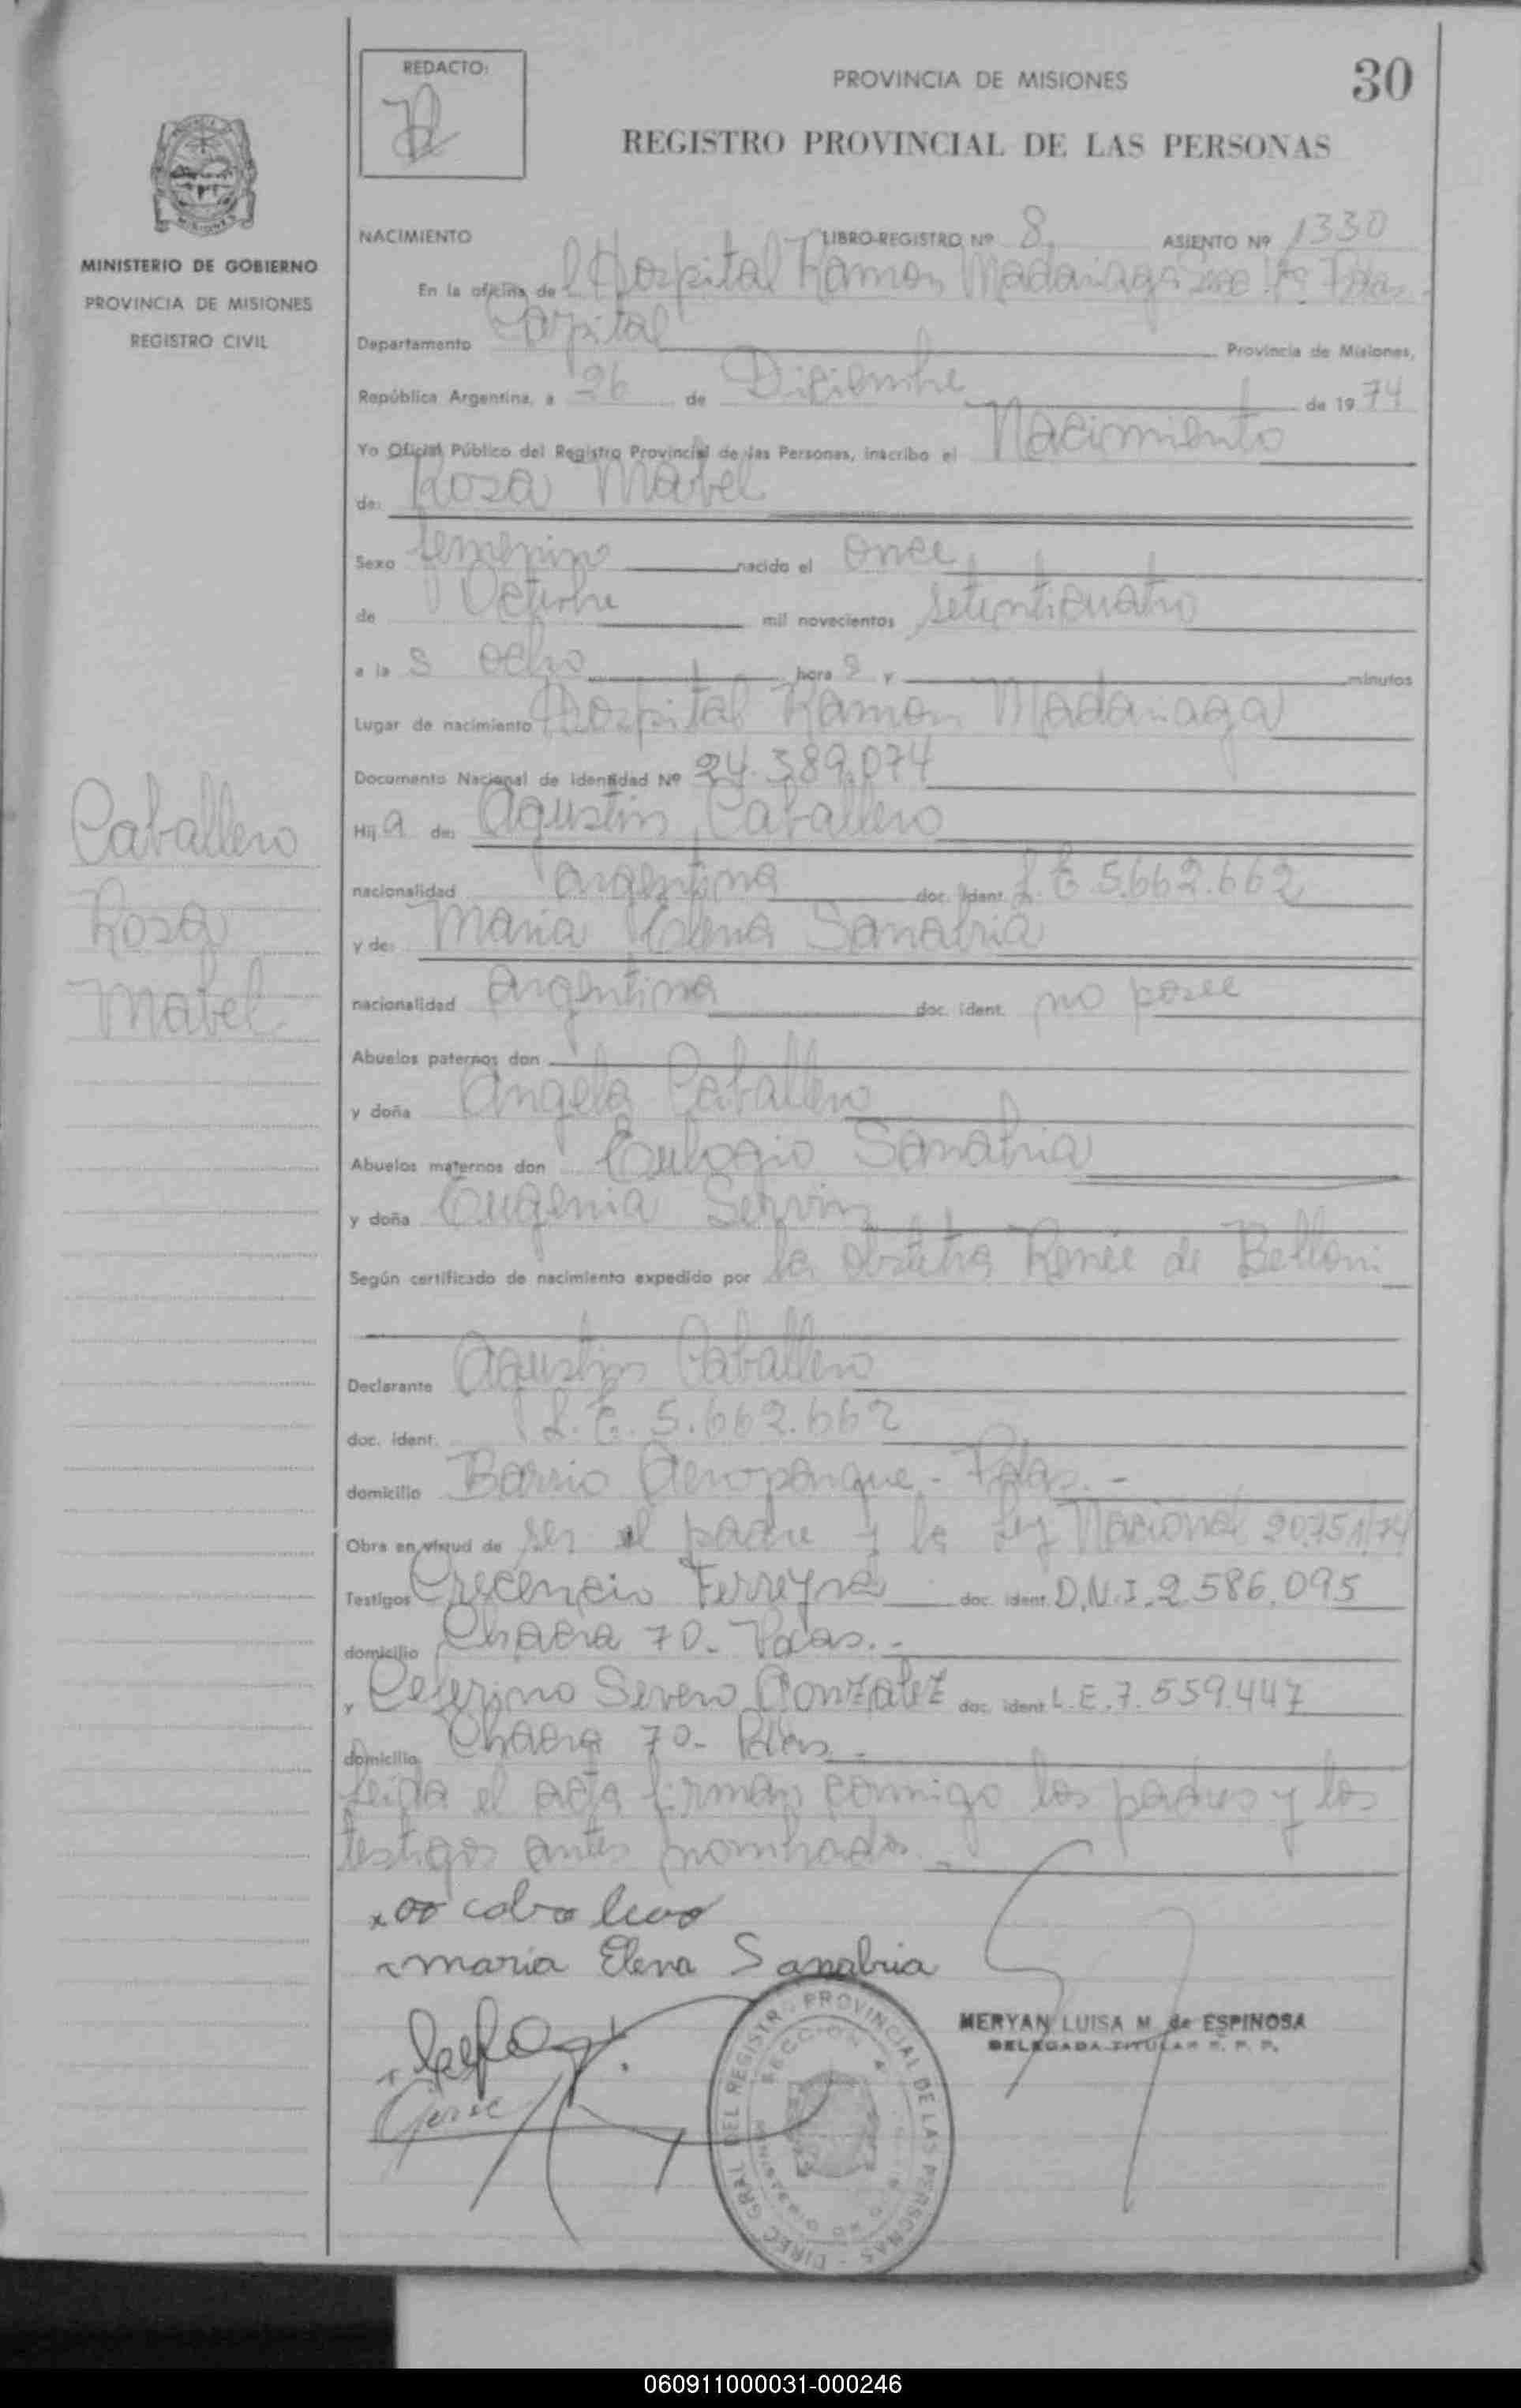 REDACTO:
PROVINCIA DE MISIONES
30
REGISTRO PROVINCIAL DE LAS PERSONAS
MINISTERIO DE GOBIERNO
PROVINCIA DE MISIONES
REGISTRO CIVIL
NACIMIENTO LIBRO-REGISTRO Nº 8 ASIENTO Nº 1330
En la oficina de l Hospital Ramon Madariaga Pdas.
Departamento Capital Provincia de Misiones,
República Argentina, a 26 de Diciembre de 1974
Yo Oficial Público del Registro Provincial de las Personas, inscribo el Nacimiento
de: Rosa Mabel
Sexo femenino nacido el once
de Octubre mil novecientos setenticuatro
a la s ocho hora s y minutos
Lugar de nacimiento Hospital Ramon Madariaga
Documento Nacional de Identidad Nº 24.389.074
Caballero
Rosa
Mabel
Hij a de: Agustin Caballero
nacionalidad argentina doc. ident. L.E 5.662.662
y de: Maria Elena Sanabria
nacionalidad argentina doc. ident. no posee
Abuelos paternos don
y doña Angela Caballero
Abuelos maternos don Eulogio Sanabria
y doña Eugenia Servin
Según certificado de nacimiento expedido por la obstetra Renée de Belloni
Declarante Agustin Caballero
doc. ident. L.E. 5.662.662
domicilio Barrio Aeroparque - Pdas. -
Obra en virtud de ser el padre y la Ley Nacional 20.751/74
Testigos Crecencio Ferreyra doc. ident. D.N.I. 2.586.095
domicilio Chacra 70 - Pdas. -
y Ceferino Severo Gonzalez doc. ident. L.E. 7.559.447
domicilio Chacra 70 - Pdas -
Leida el acta firman conmigo los padres y los
testigos antes nombrados -
maria Elena Sanabria
MERYAN LUISA M. de ESPINOSA
DELEGADA TITULAR R. P. P.
DIREC. GRAL. DEL REGISTRO PROVINCIAL DE LAS PERSONAS
SECCION
060911000031-000246